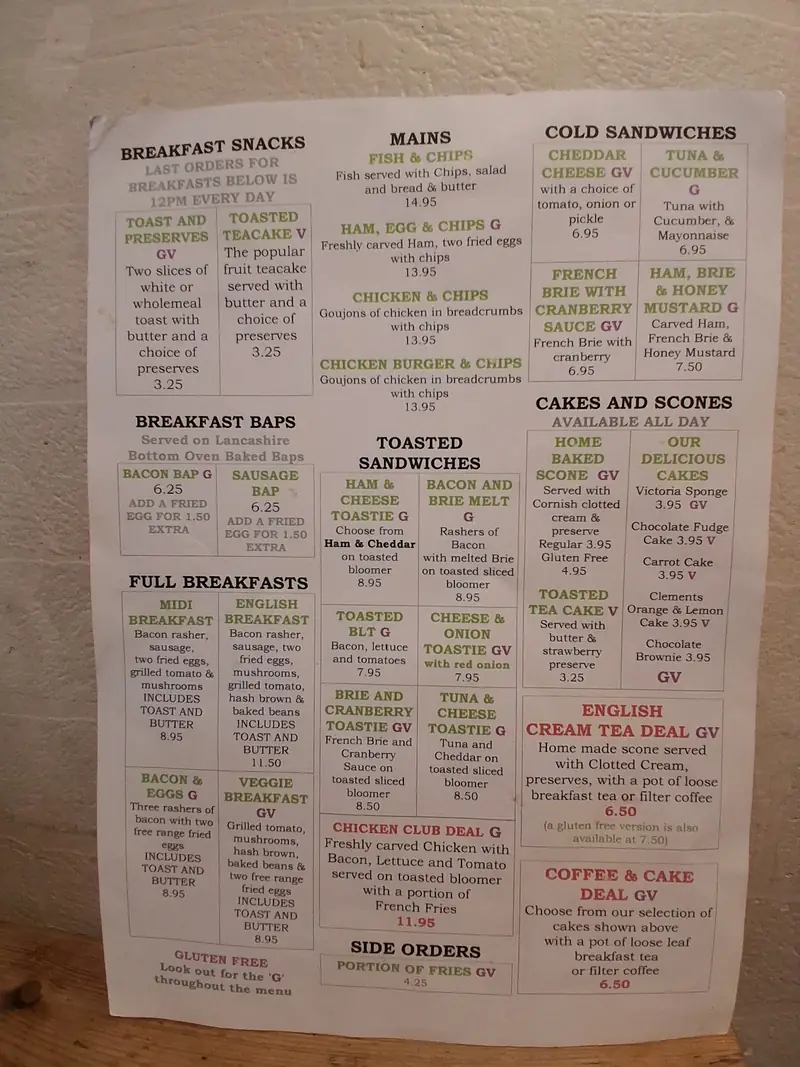 BREAKFAST SNACKS
LAST ORDERS FOR
BREAKFASTS BELOW IS
12PM EVERY DAY
TOAST AND
PRESERVES
GV
Two slices of
white or
wholemeal
toast with
butter and a
choice of
preserves
3.25
TOASTED
TEACAKE V
The popular
fruit teacake
served with
butter and a
choice of
preserves
3.25
BREAKFAST BAPS
Served on Lancashire
Bottom Oven Baked Baps
BACON BAP G
6.25
ADD A FRIED
EGG FOR 1.50
EXTRA
SAUSAGE
BAP
6.25
ADD A FRIED
EGG FOR 1.50
EXTRA
FULL BREAKFASTS
MIDI
BREAKFAST
Bacon rasher,
sausage,
two fried eggs,
grilled tomato &
mushrooms
INCLUDES
TOAST AND
BUTTER
8.95
ENGLISH
BREAKFAST
Bacon rasher,
sausage, two
fried eggs,
mushrooms,
grilled tomato,
hash brown &
baked beans
INCLUDES
TOAST AND
BUTTER
11.50
BACON &
EGGS G
Three rashers of
bacon with two
free range fried
eggs
INCLUDES
TOAST AND
BUTTER
8.95
VEGGIE
BREAKFAST
GV
Grilled tomato,
mushrooms,
hash brown,
baked beans &
two free range
fried eggs
INCLUDES
TOAST AND
BUTTER
8.95
GLUTEN FREE
Look out for the 'G'
throughout the menu
MAINS
FISH & CHIPS
Fish served with Chips, salad
and bread & butter
14.95
HAM, EGG & CHIPS G
Freshly carved Ham, two fried eggs
with chips
13.95
CHICKEN & CHIPS
Goujons of chicken in breadcrumbs
with chips
13.95
CHICKEN BURGER & CHIPS
Goujons of chicken in breadcrumbs
with chips
13.95
TOASTED
SANDWICHES
HAM &
CHEESE
TOASTIE G
Choose from
Ham & Cheddar
on toasted
bloomer
8.95
BACON AND
BRIE MELT
G
Rashers of
Bacon
with melted Brie
on toasted sliced
bloomer
8.95
TOASTED
BLT G
Bacon, lettuce
and tomatoes
7.95
CHEESE &
ONION
TOASTIE GV
with red onion
7.95
BRIE AND
CRANBERRY
TOASTIE GV
French Brie and
Cranberry
Sauce on
toasted sliced
bloomer
8.50
TUNA &
CHEESE
TOASTIE G
Tuna and
Cheddar on
toasted sliced
bloomer
8.50
CHICKEN CLUB DEAL G
Freshly carved Chicken with
Bacon, Lettuce and Tomato
served on toasted bloomer
with a portion of
French Fries
11.95
SIDE ORDERS
PORTION OF FRIES GV
4.25
COLD SANDWICHES
CHEDDAR
CHEESE GV
with a choice of
tomato, onion or
pickle
6.95
TUNA &
CUCUMBER
G
Tuna with
Cucumber, &
Mayonnaise
6.95
FRENCH
BRIE WITH
CRANBERRY
SAUCE GV
French Brie with
cranberry
6.95
HAM, BRIE
& HONEY
MUSTARD G
Carved Ham,
French Brie &
Honey Mustard
7.50
CAKES AND SCONES
AVAILABLE ALL DAY
HOME
BAKED
SCONE GV
Served with
Cornish clotted
cream &
preserve
Regular 3.95
Gluten Free
4.95
TOASTED
TEA CAKE V
Served with
butter &
strawberry
preserve
3.25
OUR
DELICIOUS
CAKES
Victoria Sponge
3.95 GV
Chocolate Fudge
Cake 3.95 V
Carrot Cake
3.95 V
Clements
Orange & Lemon
Cake 3.95 V
Chocolate
Brownie 3.95
GV
ENGLISH
CREAM TEA DEAL GV
Home made scone served
with Clotted Cream,
preserves, with a pot of loose
breakfast tea or filter coffee
6.50
(a gluten free version is also
available at 7.50)
COFFEE & CAKE
DEAL GV
Choose from our selection of
cakes shown above
with a pot of loose leaf
breakfast tea
or filter coffee
6.50